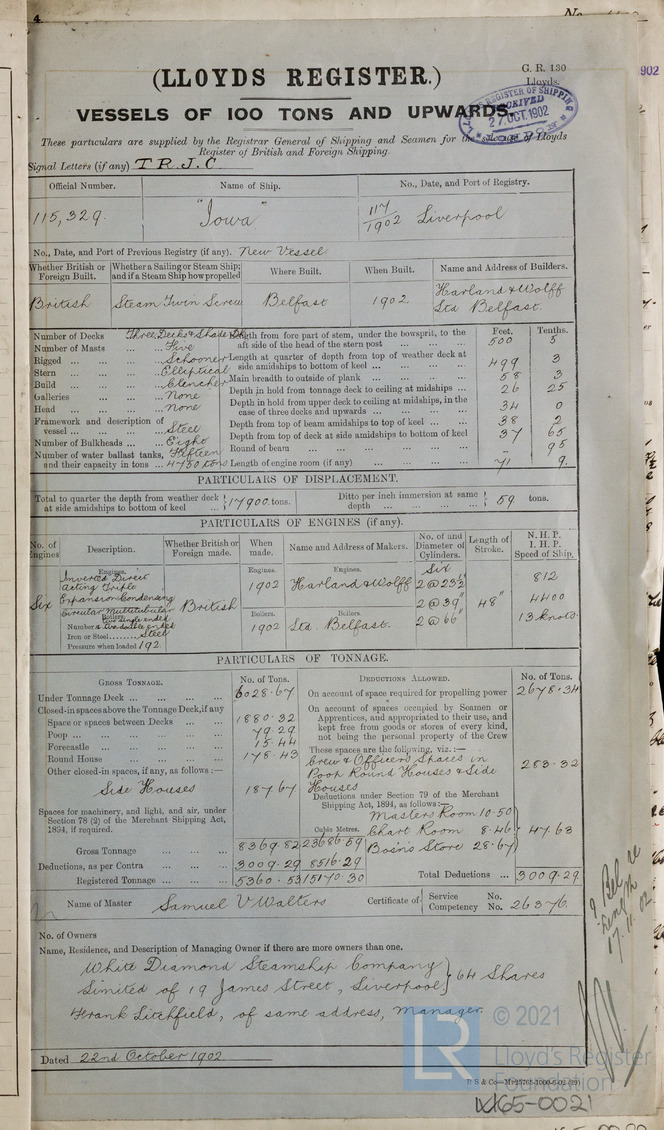 4
No.
902
(LLOYDS REGISTER.)
G. R. 130
Lloyds.
VESSELS OF 100 TONS AND UPWARDS.
LLOYD'S REGISTER OF SHIPPING
RECEIVED
27 OCT. 1902
These particulars are supplied by the Registrar General of Shipping and Seamen for the use of Lloyds
Register of British and Foreign Shipping.
Signal Letters (if any) T R J C
Official Number. Name of Ship. No., Date, and Port of Registry.
115,329. "Iowa" 117/1902 Liverpool
No., Date, and Port of Previous Registry (if any). New Vessel
Whether British or Foreign Built. Whether a Sailing or Steam Ship; and if a Steam Ship how propelled Where Built. When Built. Name and Address of Builders.
British Steam Twin Screw Belfast 1902. Harland & Wolff
Ltd Belfast.
Feet. Tenths.
Number of Decks Three Decks & Shade Dk
Number of Masts ... ... Five
Rigged ... ... ... Schooner
Stern ... ... ... Elliptical
Build ... ... ... Clencher
Galleries ... ... ... None
Head ... ... ... None
Framework and description of vessel ... ... ... Steel
Number of Bulkheads ... ... Eight
Number of water ballast tanks, Fifteen
and their capacity in tons ... 4750 tons
Length from fore part of stem, under the bowsprit, to the aft side of the head of the stern post ... ... 500 5
Length at quarter of depth from top of weather deck at side amidships to bottom of keel ... ... 499 3
Main breadth to outside of plank ... ... 58 3
Depth in hold from tonnage deck to ceiling at midships ... 26 25
Depth in hold from upper deck to ceiling at midships, in the case of three decks and upwards ... ... 34 0
Depth from top of beam amidships to top of keel ... ... 38 2
Depth from top of deck at side amidships to bottom of keel 37 65
Round of beam ... ... - 95
Length of engine room (if any) ... ... 71 9.
PARTICULARS OF DISPLACEMENT.
Total to quarter the depth from weather deck at side amidships to bottom of keel ... 17900. tons. Ditto per inch immersion at same depth ... ... 59 tons.
PARTICULARS OF ENGINES (if any).
No. of Engines Description. Whether British or Foreign made. When made. Name and Address of Makers. No. of and Diameter of Cylinders. Length of Stroke. N. H. P. I. H. P. Speed of Ship.
Engines. Engines. Engines. Six
Inverted Direct 1902 Harland & Wolff 2 @ 23½" 812
Acting Triple
Six Expansion Condensing British 2 @ 39" 48" 4400
Circular Multitubular
Boilers. Boilers. Boilers.
Number & two double ended 1902 Ltd. Belfast. 2 @ 66" 13 knots.
Iron or Steel ... Steel
Pressure when loaded 192.
PARTICULARS OF TONNAGE.
GROSS TONNAGE. No. of Tons. DEDUCTIONS ALLOWED. No. of Tons.
Under Tonnage Deck ... ... 6028.67
Closed-in spaces above the Tonnage Deck, if any
Space or spaces between Decks ... 1880.32
Poop ... ... 79.29
Forecastle ... ... 15.44
Round House ... ... 178.43
Other closed-in spaces, if any, as follows:—
Side Houses 187.67
Spaces for machinery, and light, and air, under Section 78 (2) of the Merchant Shipping Act, 1894, if required.
Cubic Metres.
Gross Tonnage ... ... 8369.82 23686.59
Deductions, as per Contra ... ... 3009.29 8516.29
Registered Tonnage ... ... 5360.53 15170.30
On account of space required for propelling power 2678.34
On account of spaces occupied by Seamen or Apprentices, and appropriated to their use, and kept free from goods or stores of every kind, not being the personal property of the Crew
These spaces are the following, viz.:—
Crew & Officers Spaces in 283.32
Poop Round Houses & Side
Houses
Deductions under Section 79 of the Merchant Shipping Act, 1894, as follows:—
Masters Room 10.50
Chart Room 8.46 47.63
Bosn's Store 28.67
Total Deductions ... 3009.29
Name of Master Samuel V Walters Certificate of Service Competency No. No. 26376.
No. of Owners
Name, Residence, and Description of Managing Owner if there are more owners than one.
White Diamond Steamship Company
Limited of 19 James Street, Liverpool } 64 Shares
Frank Litchfield, of same address, Manager.
17.11.02
Dated 22nd October 1902
LR © 2021
Lloyd's Register
Foundation
LX65-0021